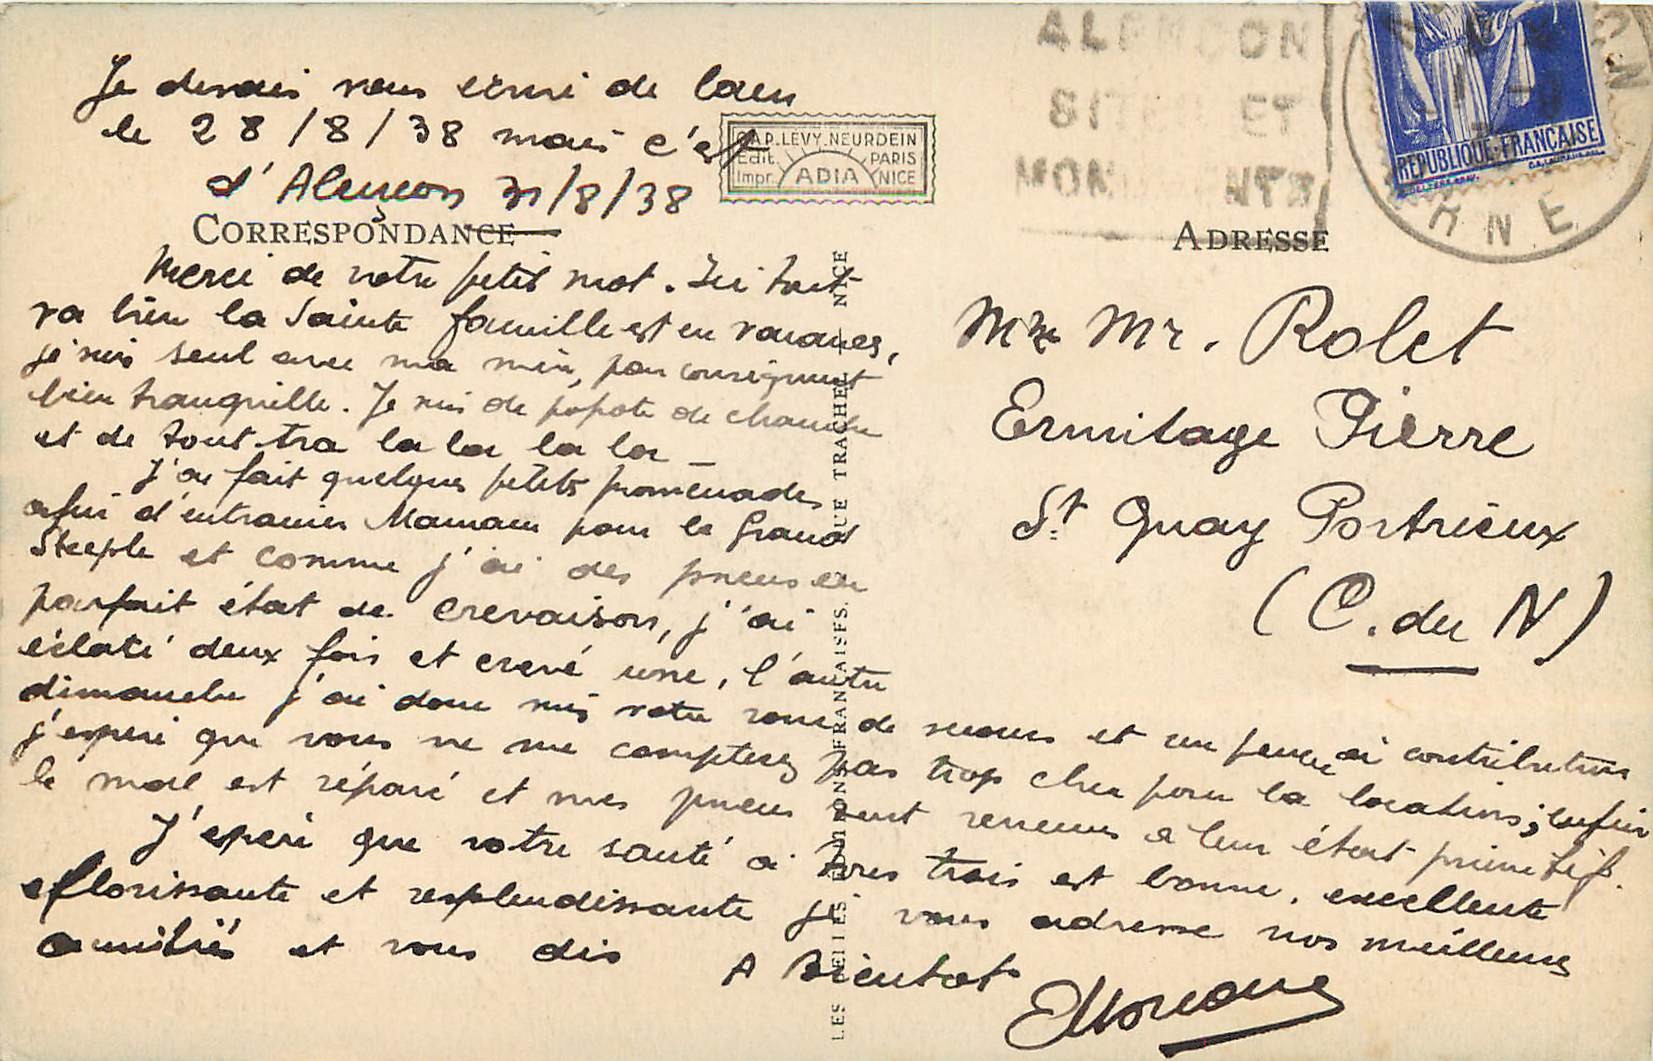 Je devais vous écrire de Caen
le 28/8/38 mais c'est
d'Alençon 31/8/38
CORRESPONDANCE
Merci de votre petit mot. Ici tout
va bien la Sainte famille est en vacances,
je suis seul avec ma mère, par conséquent
bien tranquille. Je suis de popote de chambre
et de tout tra la la la la
J'ai fait quelques petits promenades
afin d'entrainer Maman pour le Grand
Steeple et comme j'ai des pneus en
parfait état de crevaison, j'ai
éclaté deux fois et crevé une, l'autre
dimanche j'ai donc mis votre roue de secours et un pneu à contribution
j'espère que vous ne me compterez pas trop cher pour la location; enfin
le mal est réparé et mes pneus sont revenus à leur état primitif.
J'espère que votre santé à tres trois est bonne, excellente
florissante et resplendissante je vous adresse nos meilleures
amitiés et vous dis
A Bientot
CAP. LEVY-NEURDEIN
Edit. PARIS
Impr. ADIA NICE
LES BELLES EDITIONS FRANÇAISES. TRACHEL NICE
ALENÇON
SITES ET
MONUMENTS
REPUBLIQUE FRANÇAISE
ORNE
ADRESSE
Mme Mr. Rolet
Ermitage Pierre
St Quay Portrieux
(C. du N)